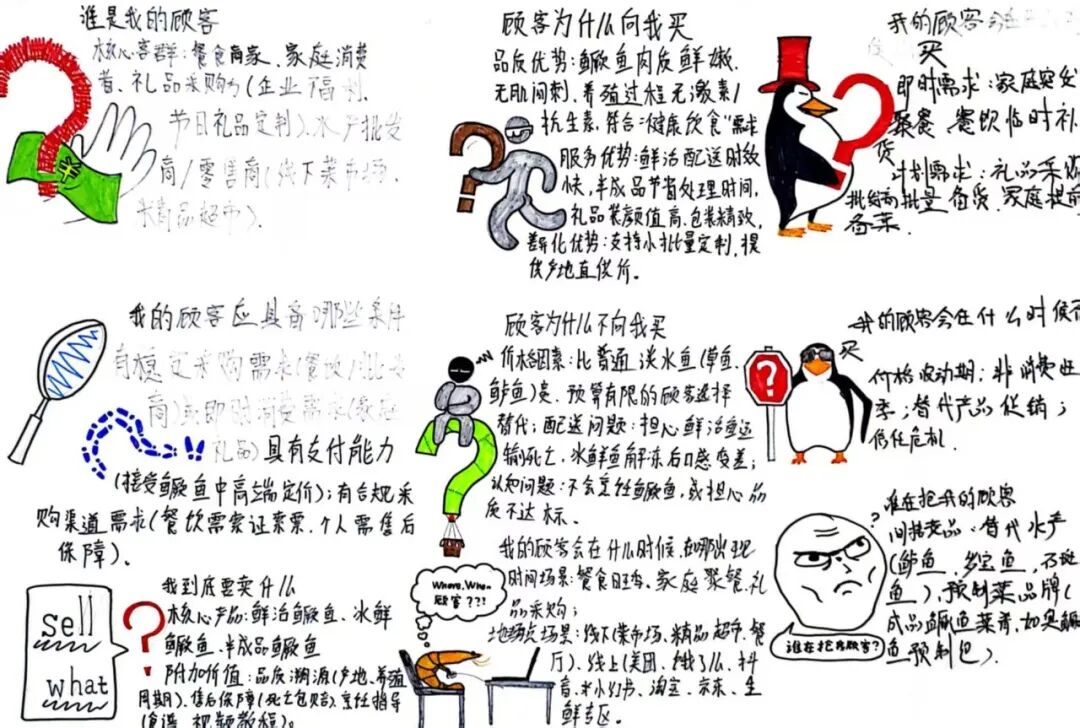 谁是我的顾客
核心客群:餐食商家、家庭消费
者、礼品采购方(企业福利、
节日礼品定制)、水产批发
商/零售商(线下菜市场、
精品超市)。
顾客为什么向我买
品质优势:鳜鱼肉质鲜嫩、
无肌间刺、养殖过程无激素/
抗生素,符合"健康饮食"需求
服务优势:鲜活配送时效
快,半成品节省处理时间,
礼品装颜值高、包装精致,
差异化优势:支持小批量定制,提
供产地直供价。
我的顾客会
买
即时需求:家庭突发
聚餐、餐饮临时补
货
计划需求:礼品采购
批量备货、家庭提前
备菜.
我的顾客应具备哪些条件
有稳定采购需求(餐饮/批发
商)或即时消费需求(家庭
礼品)具有支付能力
(接受鳜鱼中高端定价);有合规采
购渠道需求(餐饮需索证索票,个人需售后
保障)。
顾客为什么不向我买
价格因素:比普通淡水鱼(草鱼、
鲈鱼)贵、预算有限的顾客选择
替代;配送问题:担心鲜活鱼运
输死亡、冰鲜鱼解冻后口感变差;
认知问题:不会烹饪鳜鱼,或担心品
质不达标。
我的顾客会在什么时候否
买
价格波动期;非消费旺
季;替代产品促销;
信任危机.
sell
what
我到底要卖什么
核心产品:鲜活鳜鱼、冰鲜
鳜鱼、半成品鳜鱼
附加价值:品质溯源(产地、养殖
周期)、售后保障(死亡包赔)、烹饪指导
(食谱、视频教程)。
我的顾客会在什么时候、在哪出现
时间场景:餐食旺季、家庭聚餐、礼
品采购;
地场景:线下(菜市场、精品超市、餐
厅)、线上(美团、饿了么、抖
音、小红书、淘宝、京东、生
鲜专区。
Where, When
顾客???
谁在抢我的顾客
间接竞品:替代水产
(鲈鱼、多宝鱼、石斑
鱼)、预制菜品牌(
成品鳜鱼菜肴,如臭鳜
鱼预制包)
?
谁在抢我顾客?